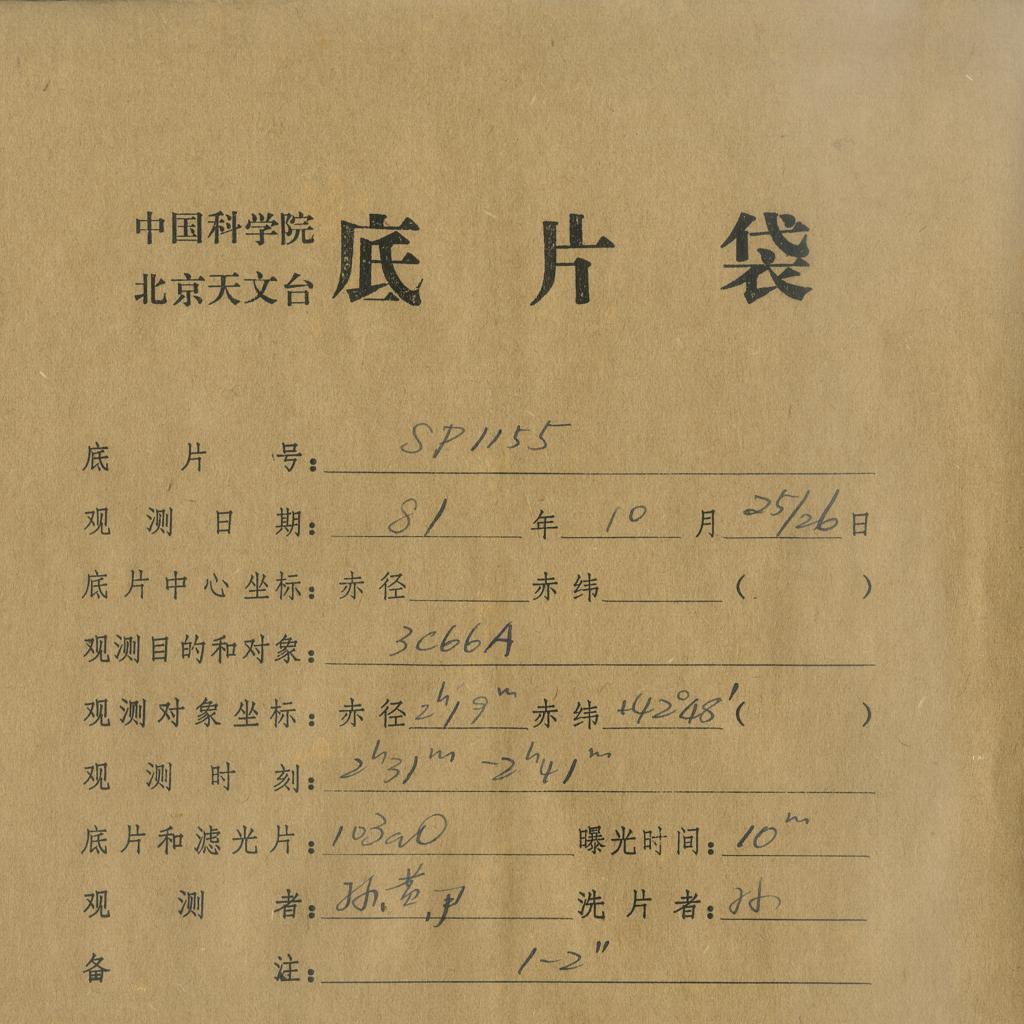 中国科学院
北京天文台
底片袋
底片号：SP1155
观测日期：81年10月25/26日
底片中心坐标：赤径 赤纬 （ ）
观测目的和对象：3C66A
观测对象坐标：赤径2ʰ19ᵐ赤纬+42°48′（ ）
观测时刻：2ʰ31ᵐ -2ʰ41ᵐ
底片和滤光片：103aO 曝光时间：10ᵐ
观测者：孙、黄、 洗片者：孙
备注：1-2″